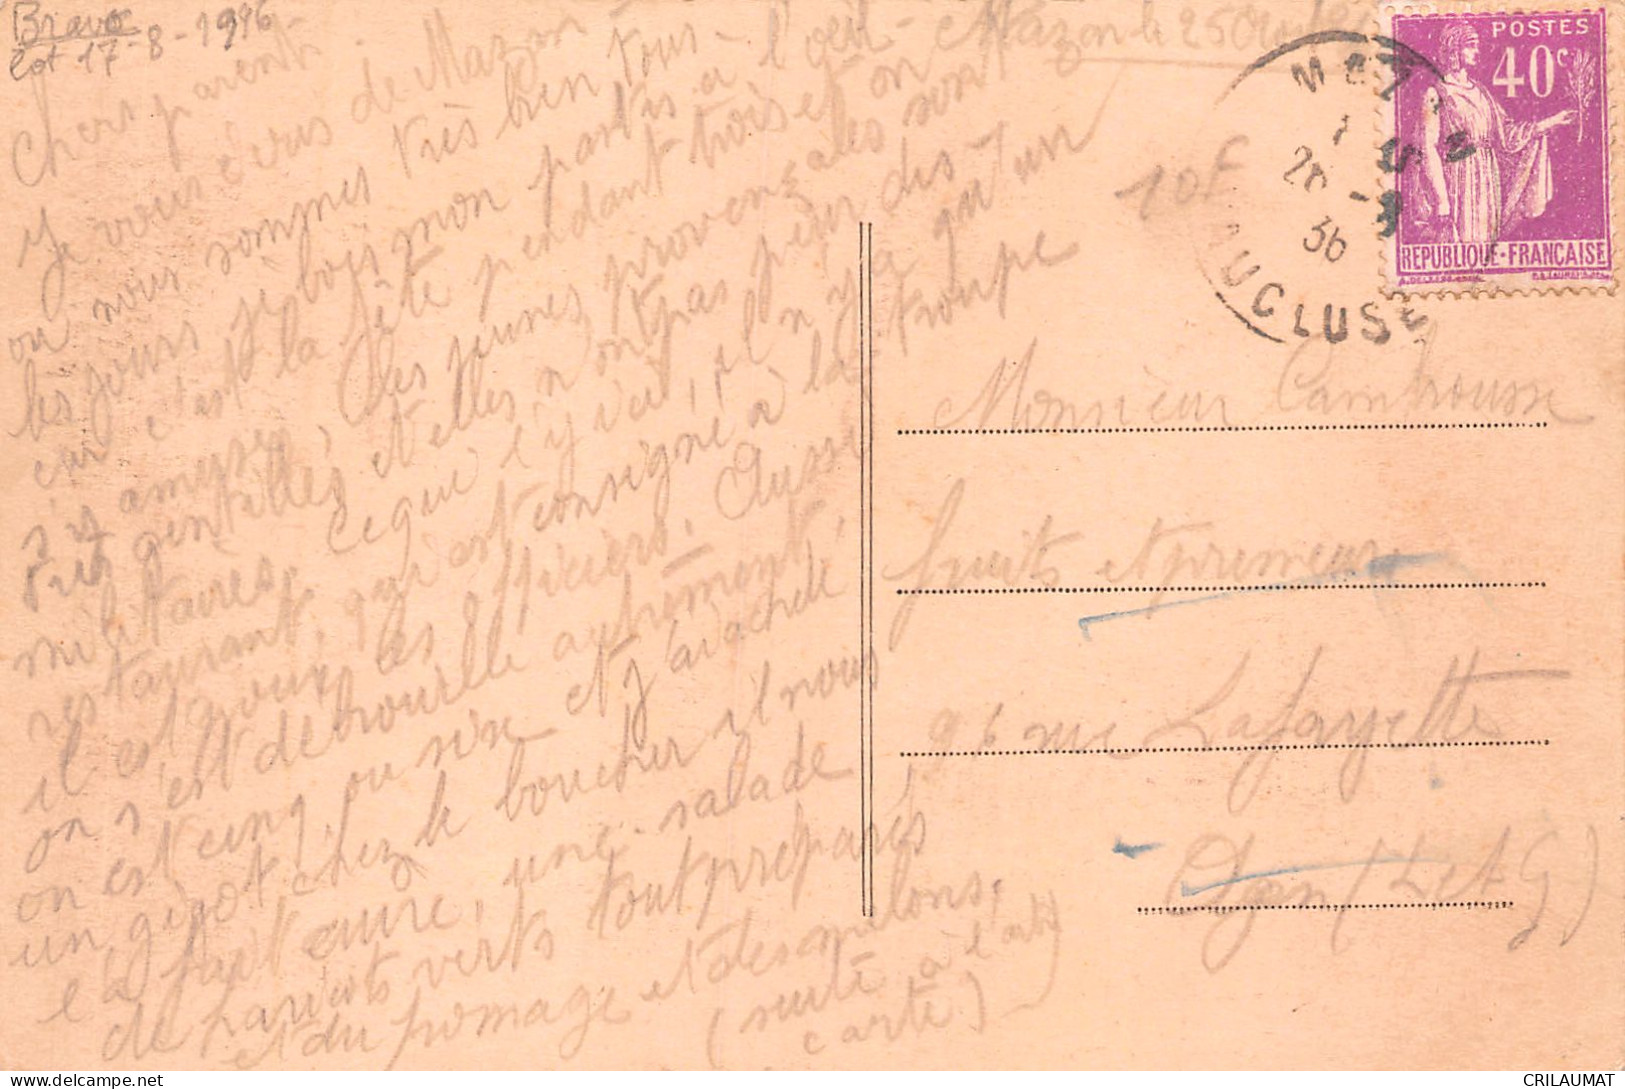 Bravo
lot 17-8-1996
Mazan le 25
Chers parents.
Je vous écris de Mazan
où nous sommes très bien tous
les jours je bois mon pastis à l'oeil
car c'est la fête pendant trois et on
s'est amusé, les jeunes provençales sont
très gentilles et elles n'ont pas peur des
militaires. Ce que il y a, il n'y a qu'un
restaurant, qui est consigné à la troupe
il est pour les officiers. Aussi
on s'est débrouillé autrement,
on est cinq ou six et j'ai acheté
un gigot chez le boucher il nous
l'a fait cuire, une salade
de haricots verts tout préparés
et du fromage et des melons.
(suite à l'autre
carte)
10F
MAZAN
36
VAUCLUSE
POSTES
40c
REPUBLIQUE-FRANCAISE
Monsieur Cambrousse
fruits et primeurs
96 rue Lafayette
Agen (L et G)
CRILAUMAT